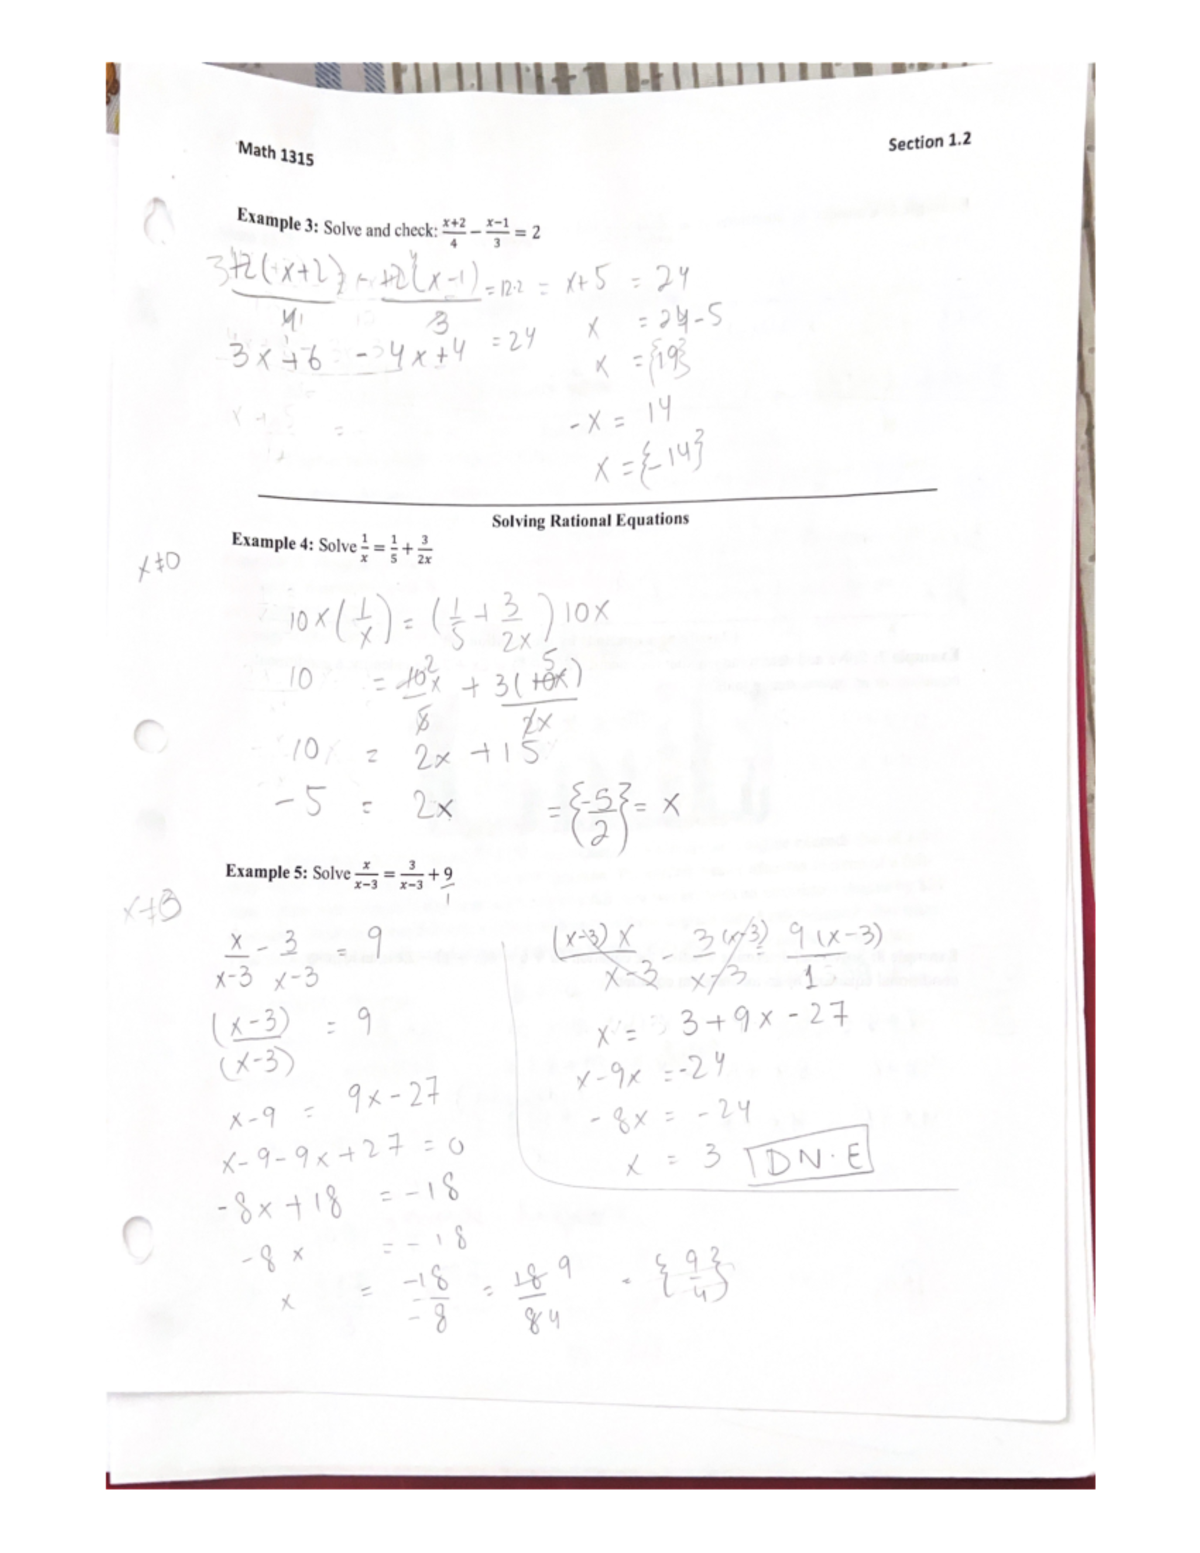 Math 1315
Section 1.2
Example 3: Solve and check: (x+2)/4 − (x−1)/3 = 2
3 12(x+2)/4 − 12(x−1)/3 = 12·2 = x+5 = 24
x = 24-5
3x+6 -4x+4 = 24
x = {19}
-x = 14
x = {-14}
Solving Rational Equations
x≠0
Example 4: Solve 1/x = 1/5 + 3/2x
10x(1/x) = (1/5 + 3/2x)10x
10 = 10x/5 2 + 3(10x)/2x 5
10 = 2x +15
-5 = 2x = {-5/2} = x
Example 5: Solve x/(x−3) = 3/(x−3) + 9/1
x≠3
x/(x-3) - 3/(x-3) = 9
(x-3)/(x-3) = 9
x-9 = 9x-27
x-9-9x+27 = 0
-8x+18 = -18
-8x = -18
x = -18/-8 = 18/8 9 4 = {9/4}
(x-3)x/(x-3) - 3(x-3)/(x-3) = 9(x-3)/1
x = 3+9x-27
x-9x = -24
-8x = -24
x = 3 DN.E